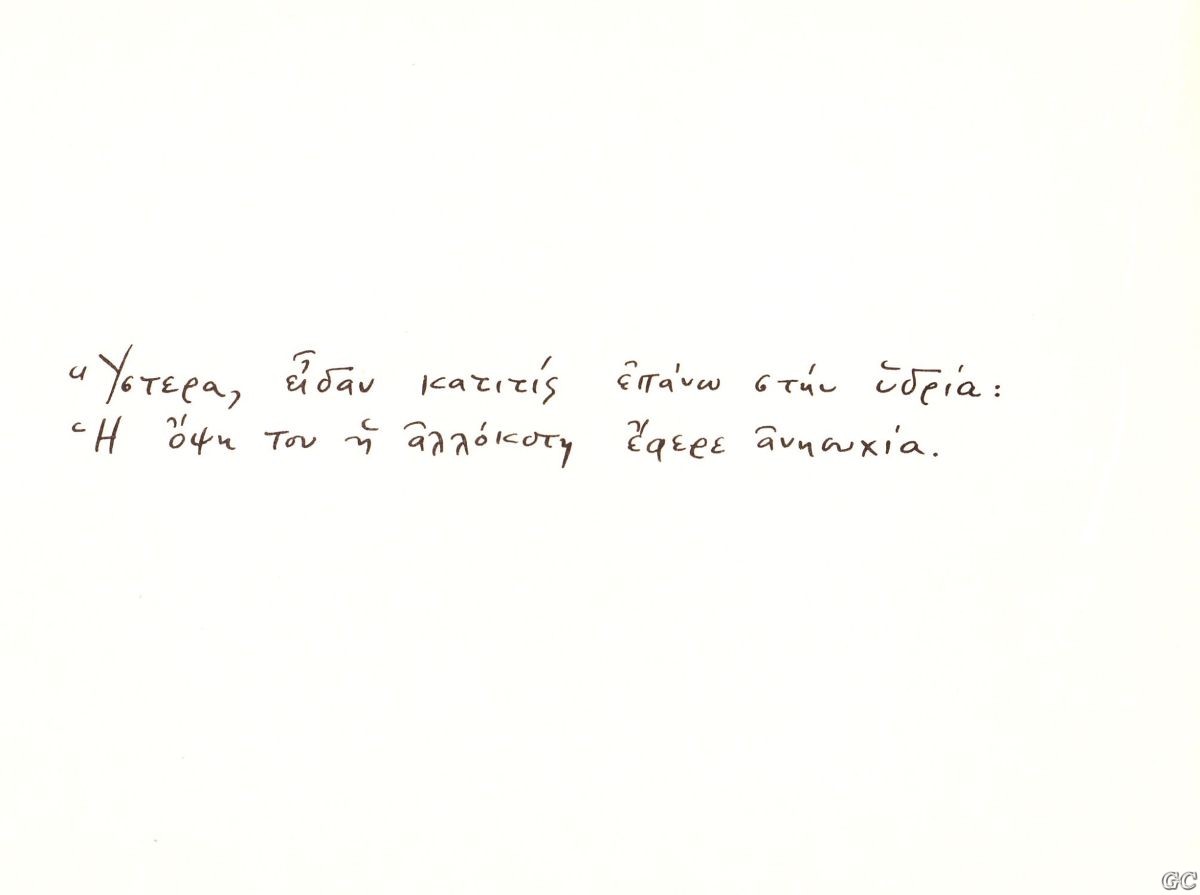 Ὕστερα, εἶδαν κατιτίς ἐπάνω στήν ὑδρία:
Ἡ ὄψη του ἡ ἀλλόκοτη ἔφερε ἀνησυχία.
GC